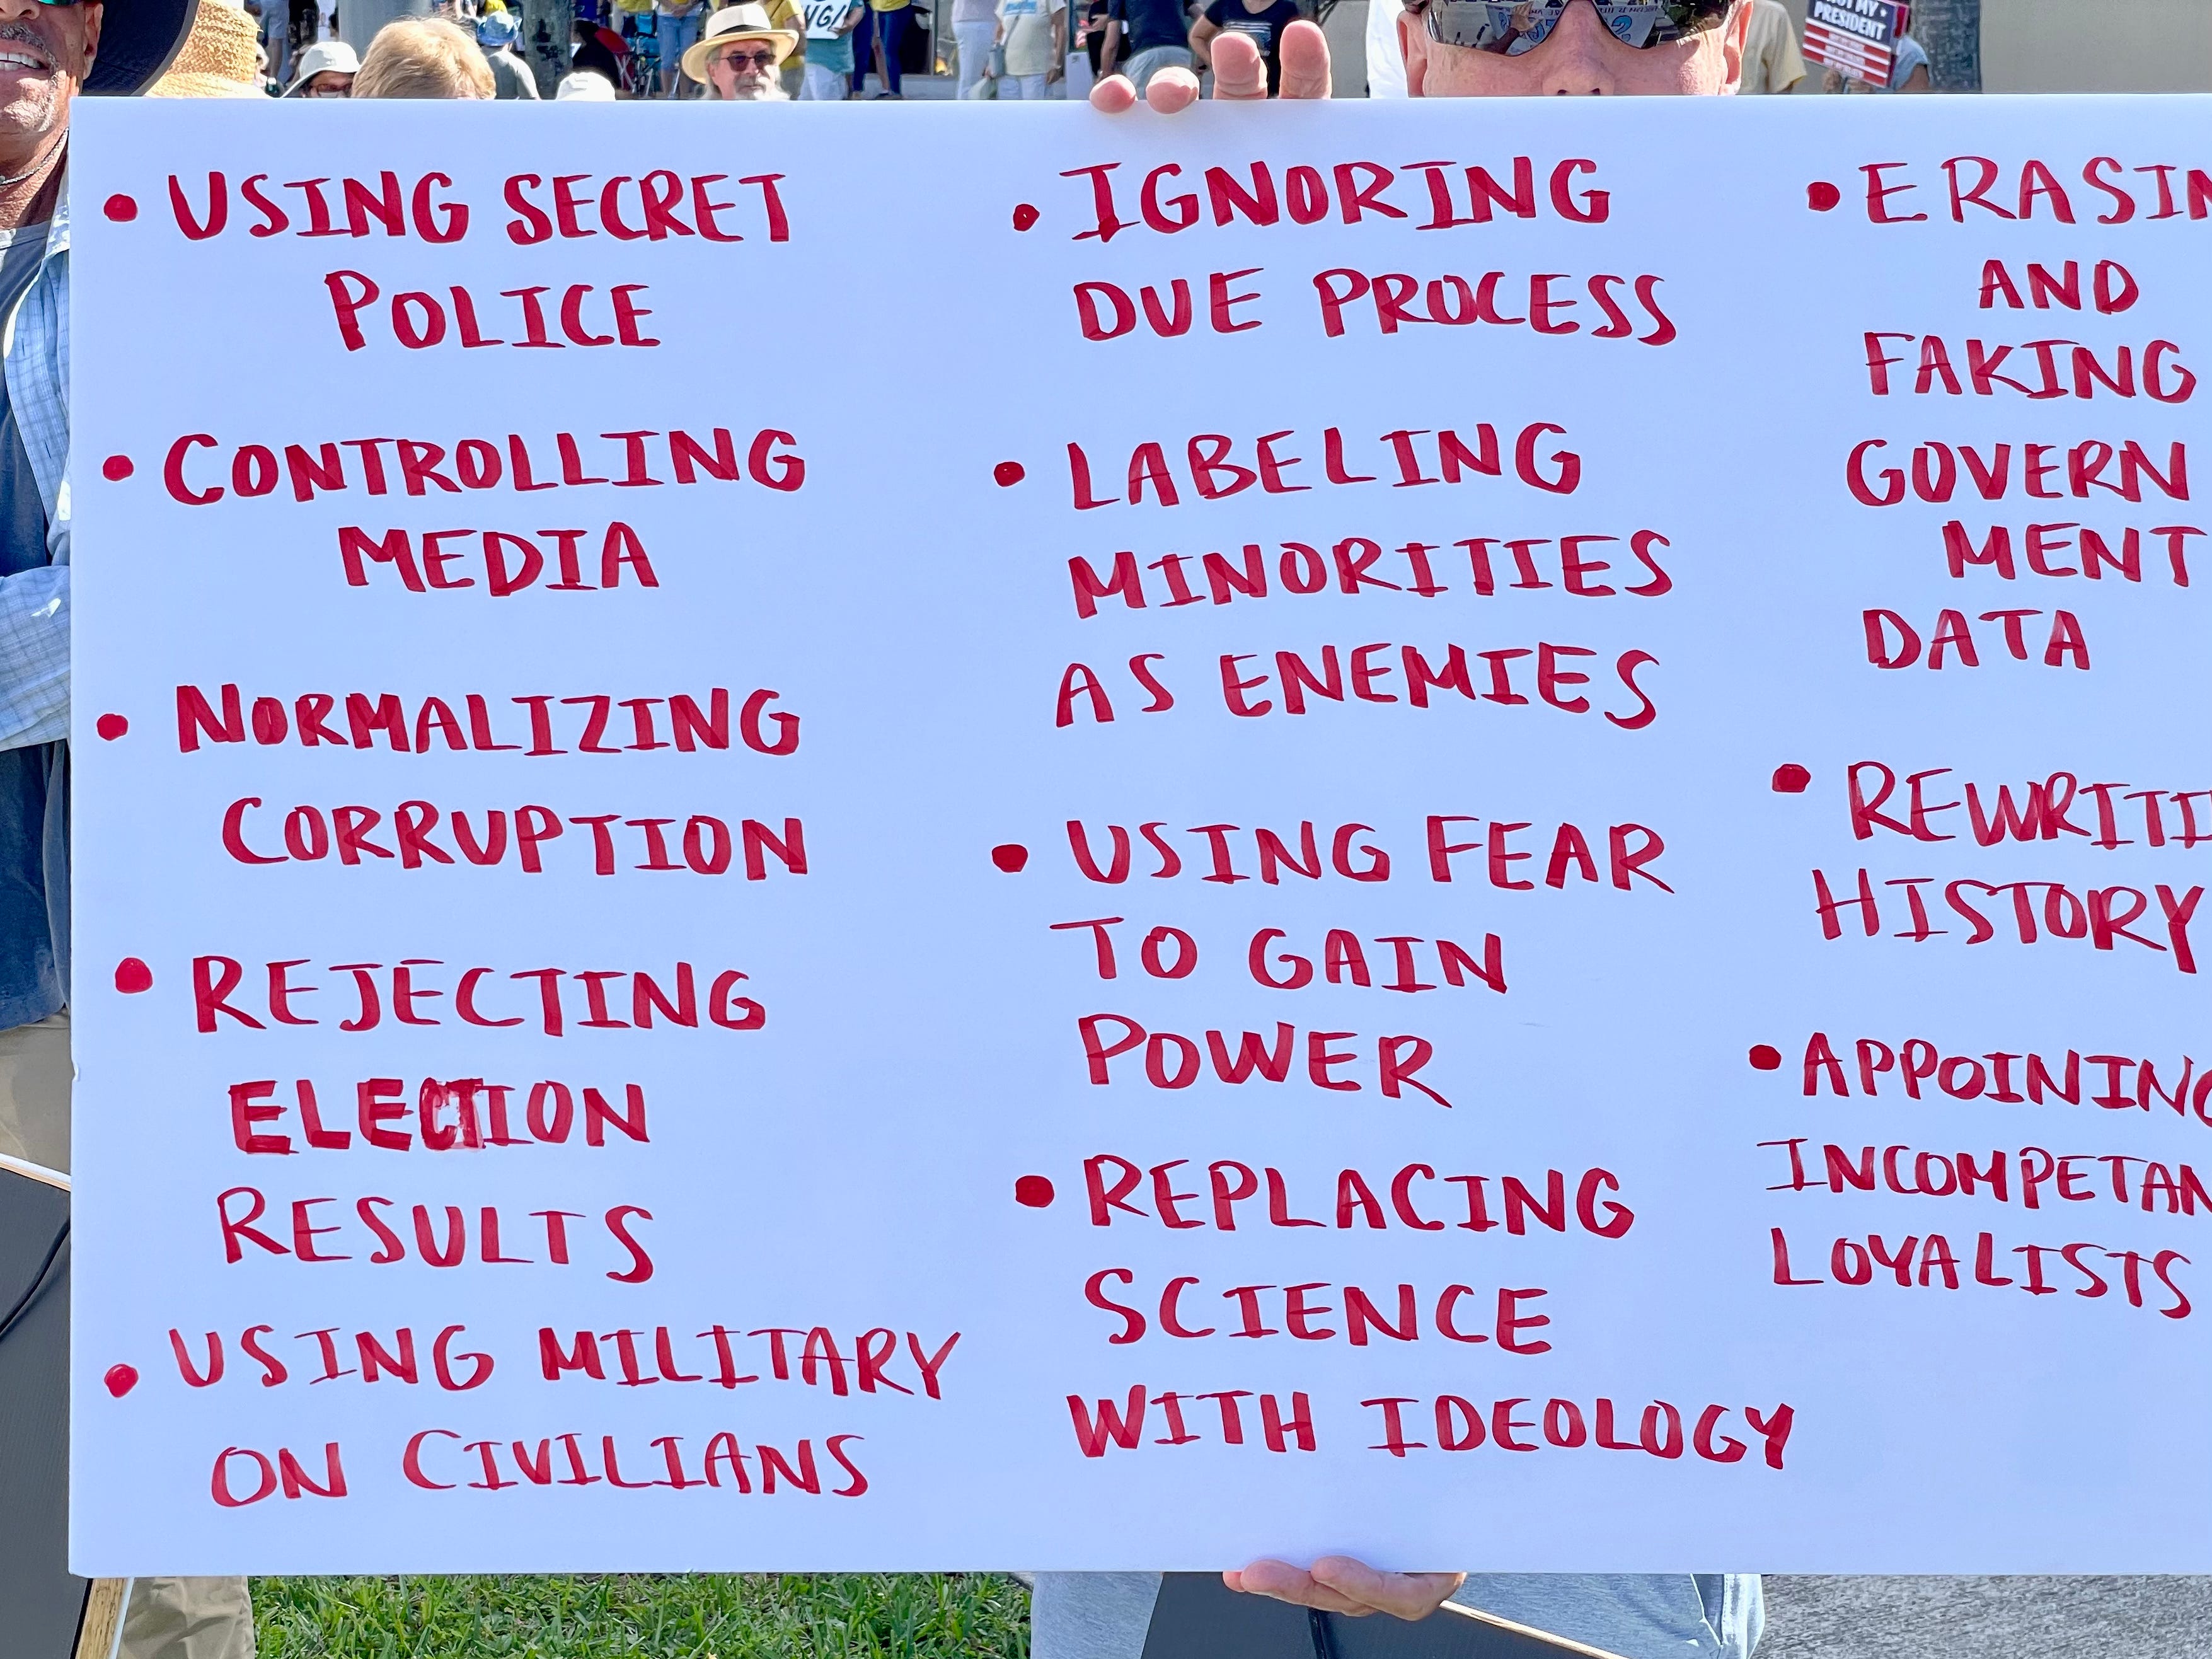 • USING SECRET
POLICE
• CONTROLLING
MEDIA
• NORMALIZING
CORRUPTION
• REJECTING
ELECTION
RESULTS
• USING MILITARY
ON CIVILIANS
• IGNORING
DUE PROCESS
• LABELING
MINORITIES
AS ENEMIES
• USING FEAR
TO GAIN
POWER
• REPLACING
SCIENCE
WITH IDEOLOGY
• ERASIN
AND
FAKING
GOVERN
MENT
DATA
• REWRITI
HISTORY
• APPOINING
INCOMPETAN
LOYALISTS
NOT MY
PRESIDENT